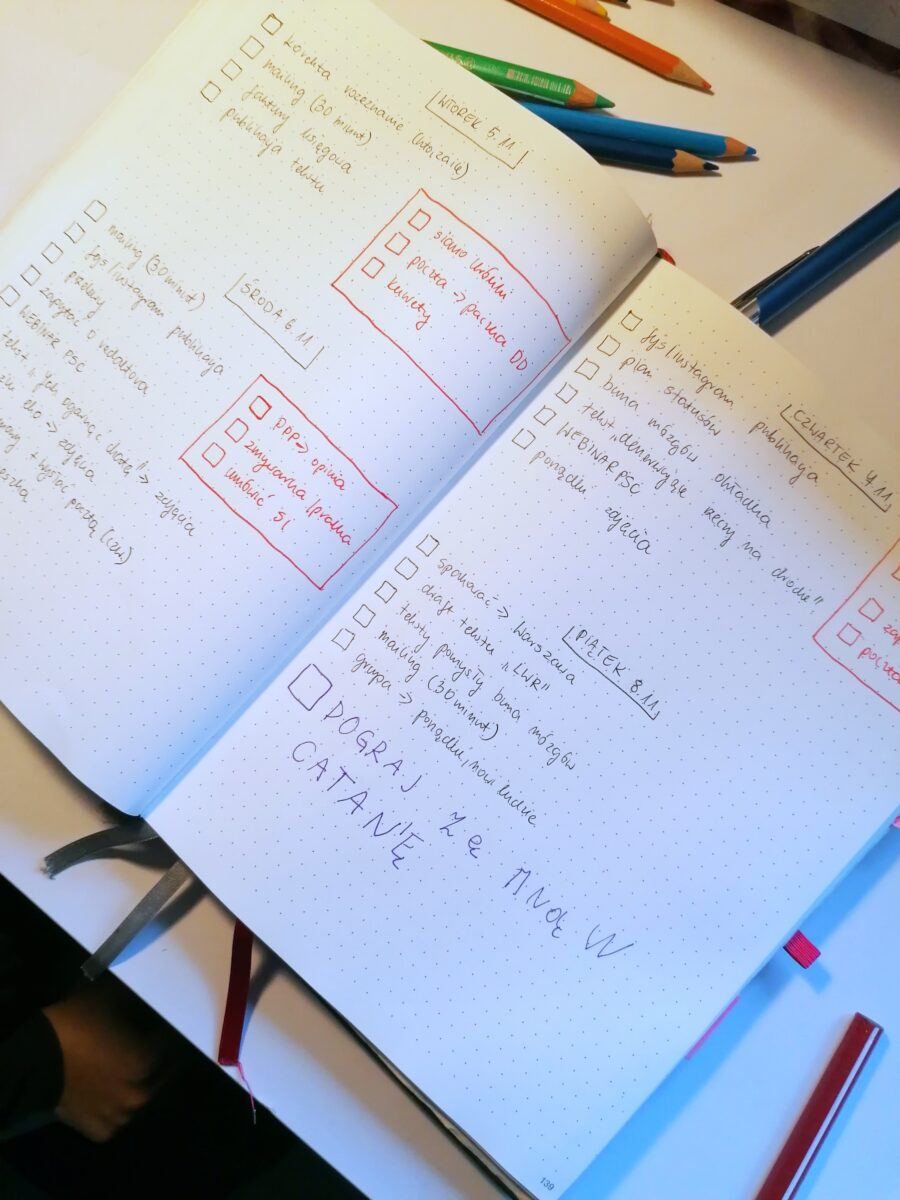 WTOREK 5.11
korekta
mailing (30 minut)
faktury księgowa
publikacja tekstu
siano
poczta → paczka DD
kuwety
ŚRODA 6.11
mailing (30 minut)
fys/instagram publikacja
przelewy
zapytać o redaktora
WEBINAR PSC
tekst "Jak ogarnąć chatę" → zdjęcia
eko → zdjęcia
+ wysłać pocztą (cont)
PPP → opinia
zmywarka/pralka
umówić SI
CZWARTEK 7.11
fys/instagram publikacja
plan statusów
burza mózgów okładka
tekst "denerwujące rzeczy na drodze"
WEBINAR PSC zdjęcia
porządki
poczta
PIĄTEK 8.11
spakować → Warszawa
draft tekstu "LWR"
teksty pomysły burza mózgów
mailing (30 minut)
grupa → porządki, nowi ludzie
POGRAJ ZE MNĄ W
CATANIĘ
139